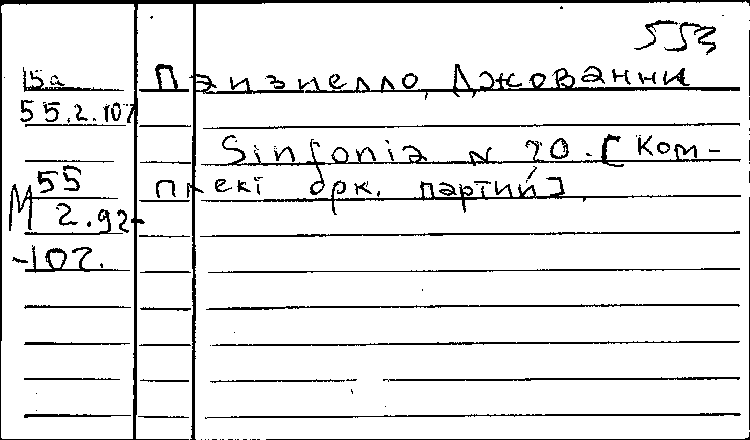 553
15a
Паизиелло, Джованни
55.2.107
Sinfonia N 20. [Ком-
плект орк. партий].
М 55
2.92-
-107.